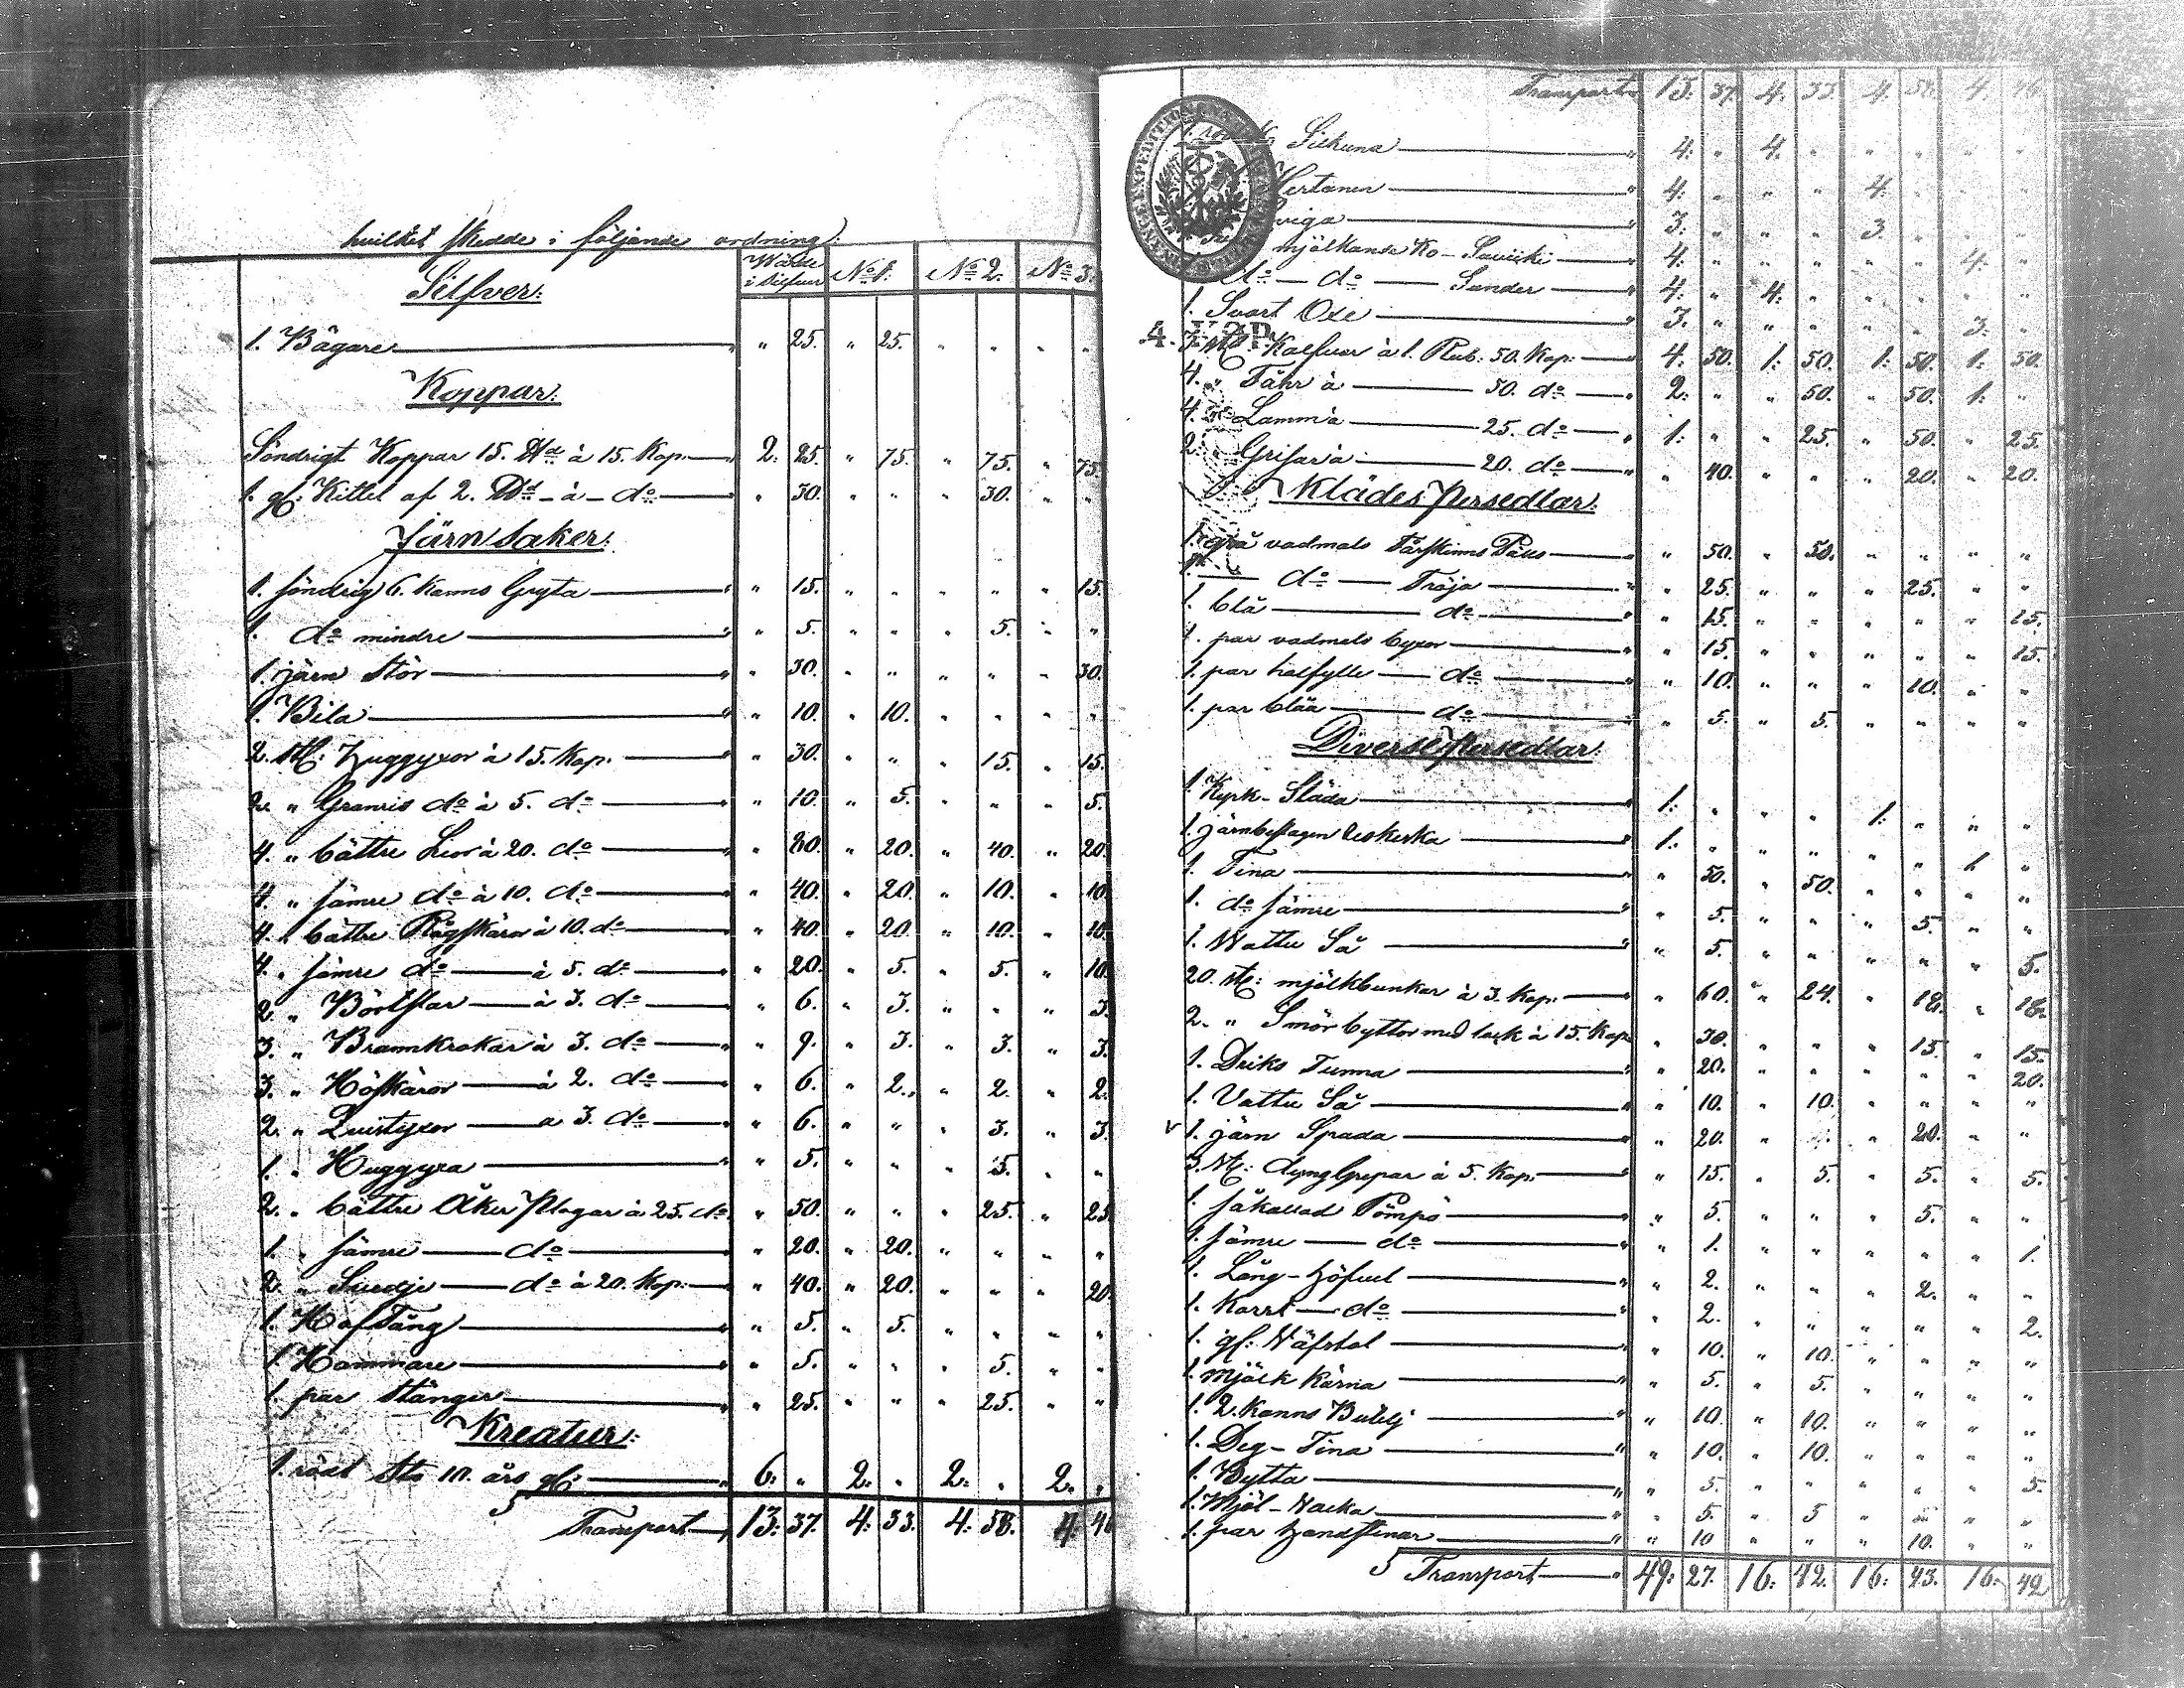 hvilket skedde i följande ordning:
Wärde i Silfver No 1. No 2. No 3.
Silfver:
1. Bägare " 25. " 25. " " " "
Koppar:
Söndrigt Koppar 15. à 15. Kop. 2. 25. " 75. " 75. " 75.
1. gl: Kittel af 2. à do " 30. " " " 30. " "
Järnsaker:
1. söndrig 6. Kanns Gryta " 15. " " " " " 15.
1. do mindre " 5. " " " 5. " "
1. järn Stör " 30. " " " " " 30.
1. Bila " 10. " 10. " " " "
2. st: huggyxor à 15. Kop. " 30. " " " 15. " 15.
2. " Granris do à 5. do " 10. " 5. " " " 5.
4. " bättre Lior à 20. do " 80. " 20. " 40. " 20.
4. " sämre do à 10. do " 40. " 20. " 10. " 10.
4. " bättre Rågskäror à 10. do " 40. " 20. " 10. " 10.
4. " sämre do à 5. do " 20. " 5. " 5. " 10.
2. " à 3. do " 6. " 3. " " " 3.
3. " Brannkrokar à 3. do " 9. " 3. " 3. " 3.
3. " Höskäror à 2. do " 6. " 2. " 2. " 2.
2. " Qvistyxor a 3. do " 6. " " " 3. " 3.
1. " Huggyxa " 5. " " " 5. " "
2. " bättre Åker Plogar à 25. do " 50. " " " 25. " 25.
1. " sämre do " 20. " 20. " " " "
2. " Svedje do à 20. Kop. " 40. " 20. " " " 20.
1. Hoftång " 5. " 5. " " " "
1. Hammare " 5. " " " 5. " "
1. par Stänger " 25. " " " 25. " "
Kreatur:
1. rödt Sto 10. års gl: 6. " 2. " 2. " 2. "
Transport 13: 37. 4: 33. 4: 58. 4: 46
Transport 13: 37. 4. 33. 4. 58. 4. 46.
1. Ko Silkuna " 4: " 4. " " " " "
Hertanen " 4: " " " 4. " " "
qviga " 3: " " " 3. " " "
mjölkande Ko - " 4: " " " " " 4: "
do - do Sunder " 4: " 4: " " " " "
1. Svart Oxe " 3. " " " " " 3. "
3. st: Kalfvar à 1. Rub: 50. Kop: 4. 50. 1: 50. 1: 50. 1: 50.
4. " Fåhr à 50. do " 2: " " 50. " 50. 1: "
4. " Lamm à 25. do " 1: " " 25. " 50. " 25.
2. Grisar à 20. do " " 40. " " " 20. " 20.
Klädes Persedlar:
1. grå vadmals Fårskinns Päls " 50. " 50. " " " "
1. do Tröja " 25. " " " 25. " "
1. blå do " 15. " " " " " 15.
1. par vadmals byxor " 15. " " " " " 15.
1. par halfylle do " 10. " " " 10. " "
1. par blåa do " 5. " 5. " " " "
Diverse Persedlar:
1. Kyrk-Släda " 1: " " " 1: " " "
1. järnbeslagen " 1: " " " " " 1 "
1. Tina " 50. " 50. " " " "
1. do sämre " 5. " " " 5. " "
1. Wattu Så " 5. " " " " " 5.
20. st: mjölkbunkar à 3. Kop: " 60. " 24. " 18. " 18.
2. " Smörbyttor med lock à 15. Kop. " 30. " " " 15. " 15.
1. Driks Tunna " 20. " " " " " 20.
1. Vattu Så " 10. " 10. " " " "
v 1. järn Spada " 20. " " " 20. " "
3. st: dyng Grepar à 5. Kop: " 15. " 5. " 5. " 5.
1. såkallad Pömpö " 5. " " " 5. " "
1. sämre do " 1. " " " " " 1.
1. Lång-höfvel " 2. " " " 2. " "
1. Kort do " 2. " " " " " 2.
1. gl: Wäfstol " 10. " 10. " " " "
1. Mjölk Kärna " 5. " 5. " " " "
1. 2. Kanns Butelj " 10. " 10. " " " "
1. Deg-Tina " 10. " 10. " " " "
1. Bytta " 5. " " " " " 5.
1. Mjöl-Wacka " 5. " 5 " " " "
1. par handstenar " 10 " " " 10. " "
Transport " 49: 27. 16: 42. 16: 43. 16: 42